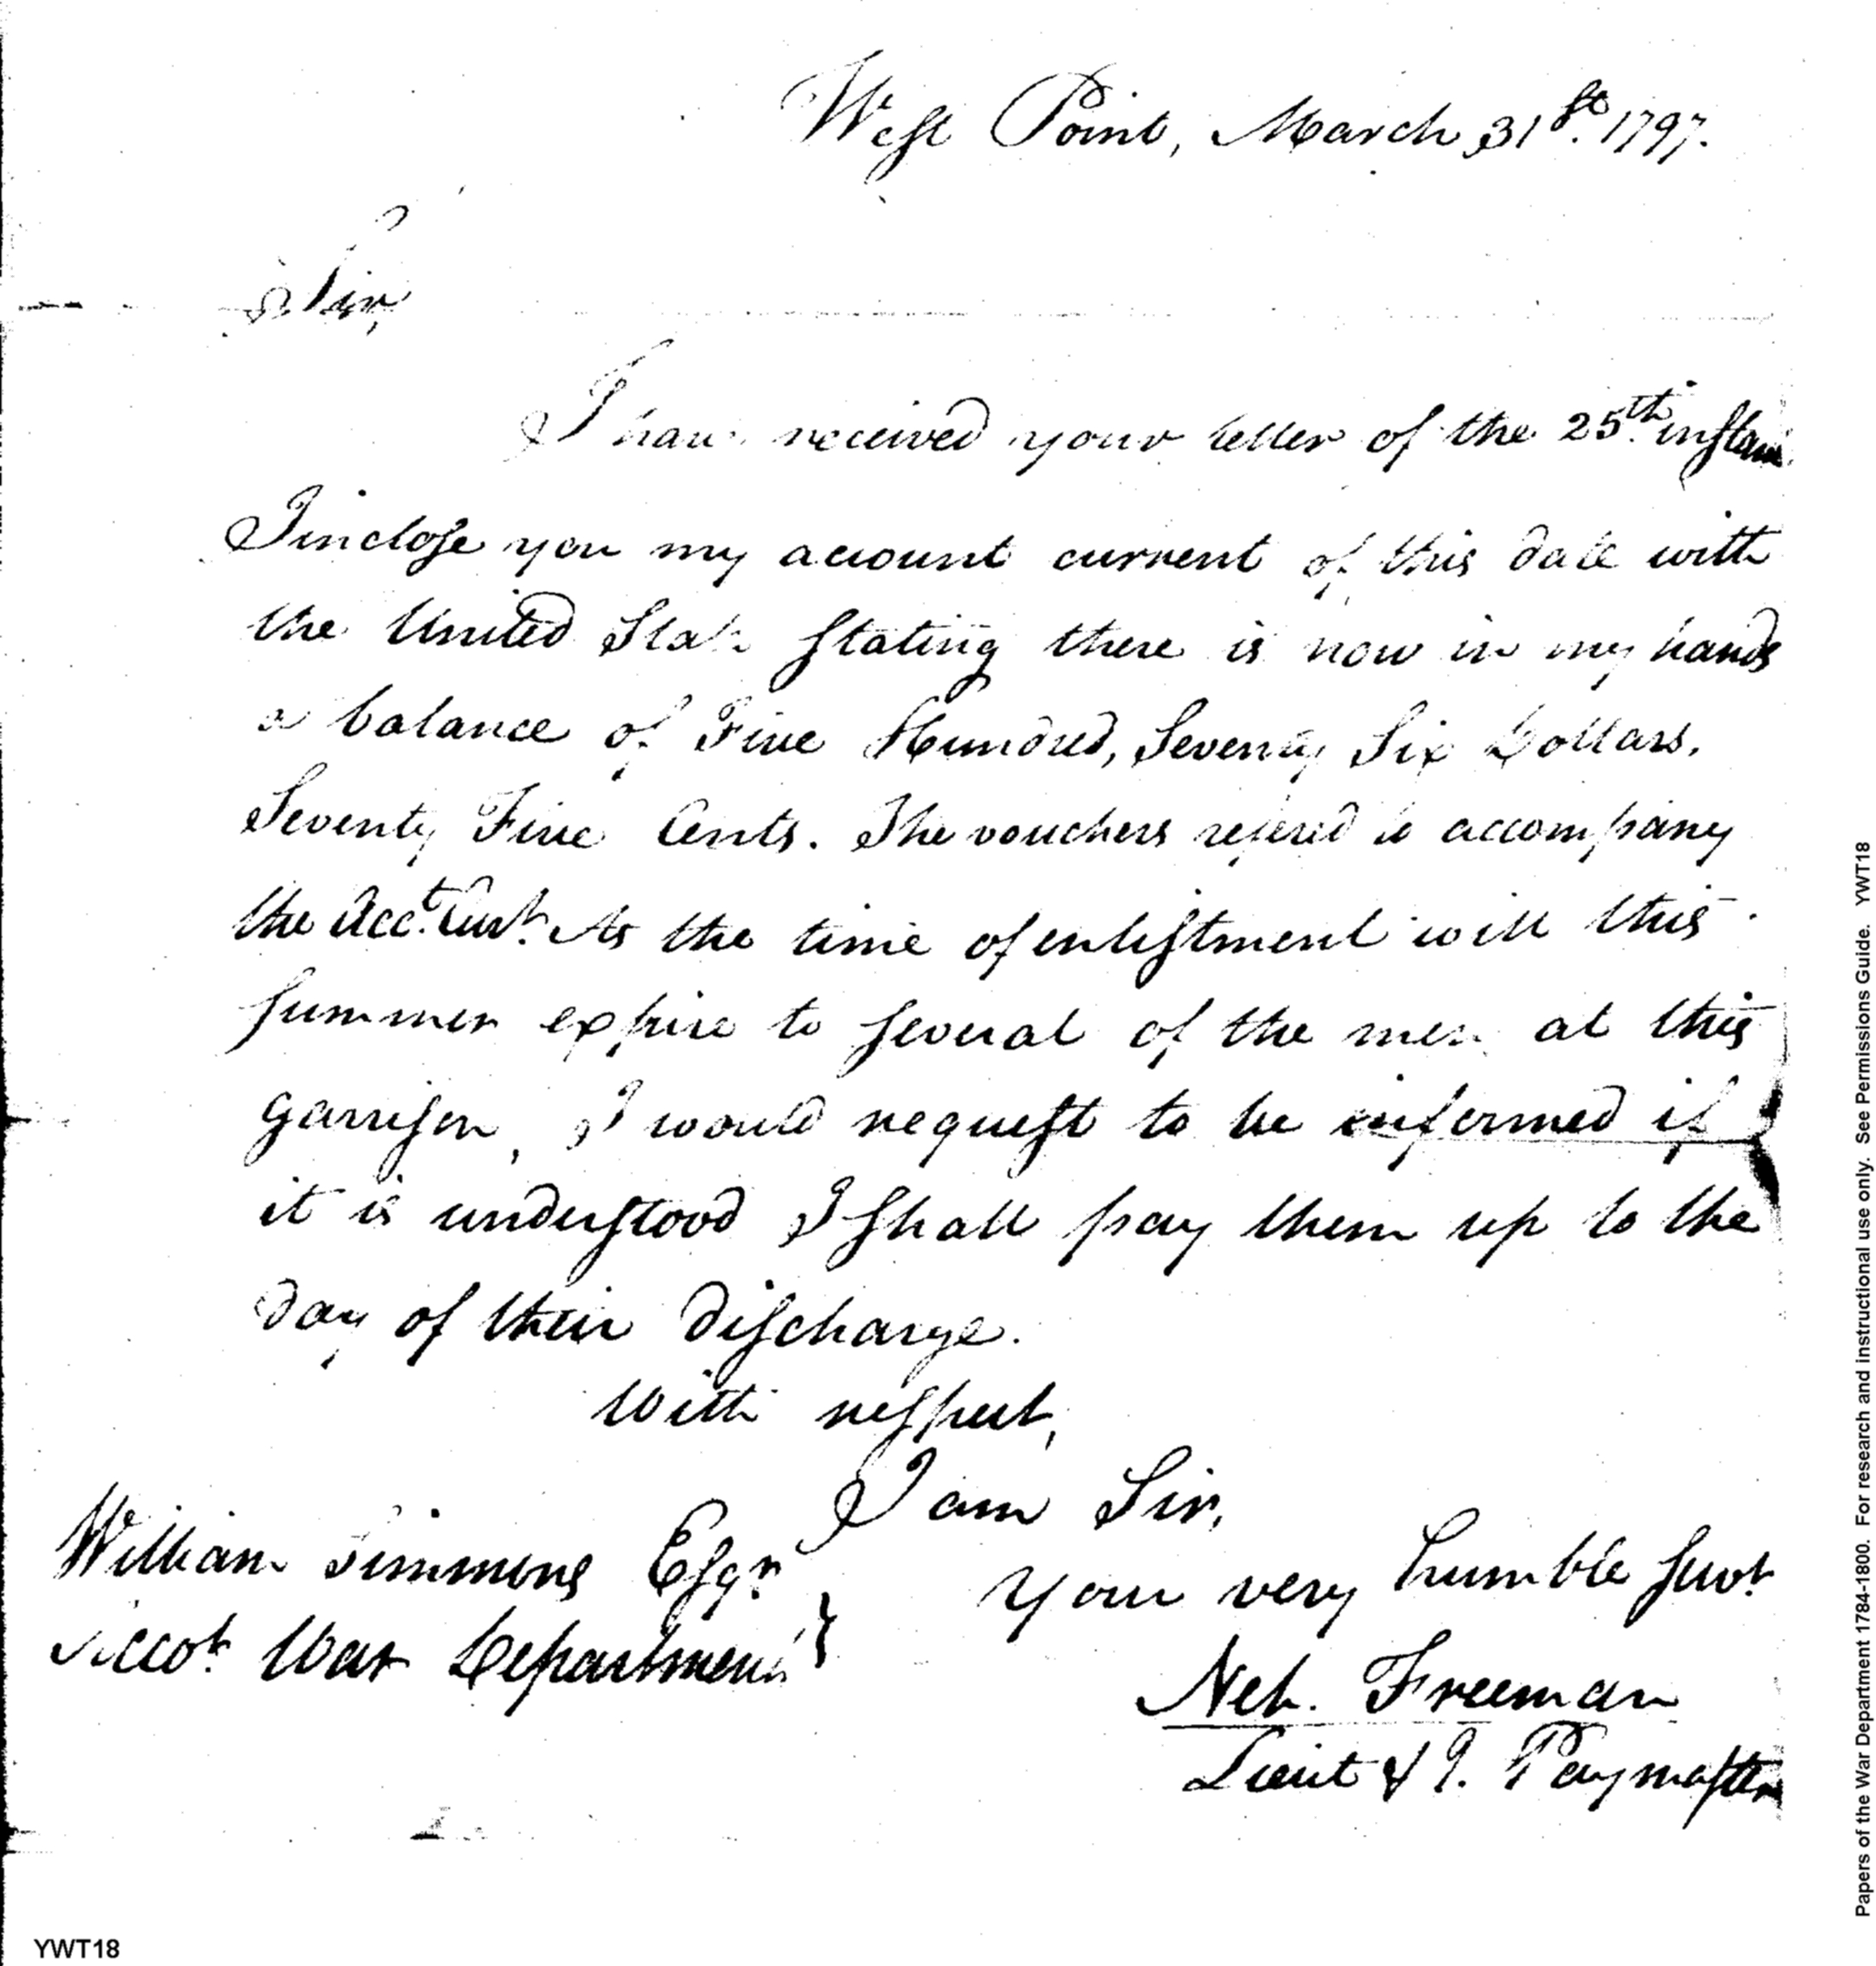 West Point, March 31st. 1797.
Sir,
I have received your letter of the 25th. instant
I inclose you my account current of this date with
the United States stating there is now in my hands
a balance of Five Hundred, Seventy Six Dollars,
Seventy Five Cents. The vouchers refered to accompany
the Acct. Curt. As the time of enlistment will this
summer expire to several of the men at this
garrison, I would request to be informed if
it is understood I shall pay them up to the
day of their discharge.
With respect,
I am Sir,
your very humble Servt.
William Simmons Esqr
Accot. War Department
Neh. Freeman
Lieut & Paymaster
Papers of the War Department 1784-1800. For research and instructional use only. See Permissions Guide. YWT18
YWT18